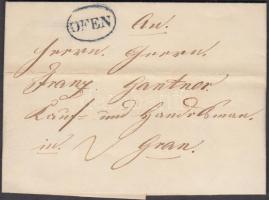 OFEN
An.
Herrn Herrn
Franz Gantner
Kauf- und Handelsman.
in. Gran.